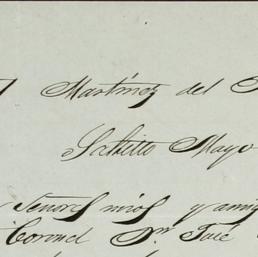 Martinez del
Saltillo Mayo
Señores mios y amig
Coronel Dn José